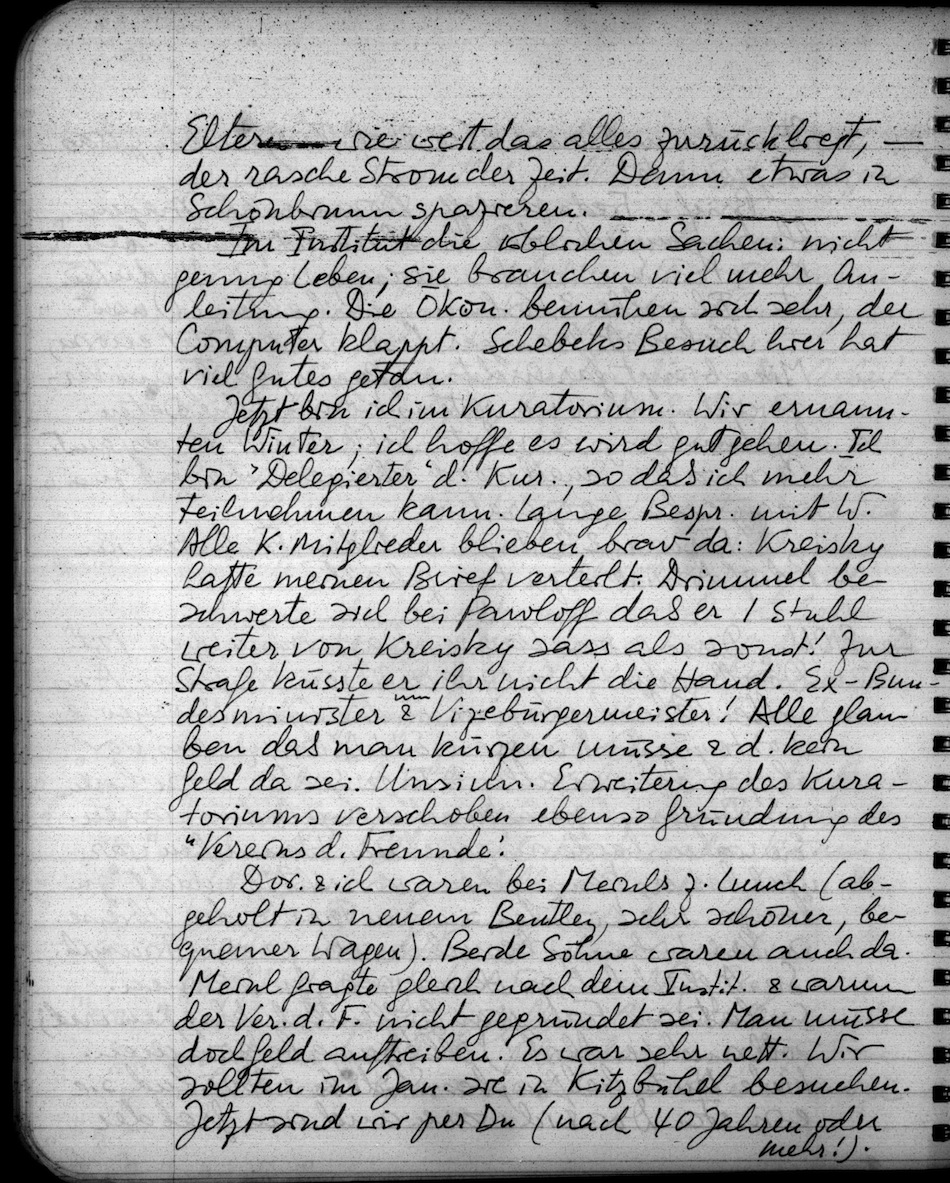 Eltern wie weit das alles zurückliegt, —
der rasche Strom der Zeit. Dann etwas in
Schönbrunn spazieren.
Im Institut die üblichen Sachen: nicht
genug Leben; sie brauchen viel mehr An-
leitung. Die Ökon. bemühen sich sehr, der
Computer klappt. Schebeks Besuch hier hat
viel gutes getan.
Jetzt bin ich im Kuratorium. Wir ernann-
ten Winter; ich hoffe es wird gut gehen. Ich
bin "Delegierter" d. Kur., so daß ich mehr
teilnehmen kann. Lange Bespr. mit W.
Alle K. Mitglieder blieben brav da: Kreisky
hatte meinen Brief verteilt. Drimmel be-
schwerte sich bei Pawloff daß er 1 Stuhl
weiter von Kreisky sass als sonst! Zur
Strafe küsste er ihr nicht die Hand. Ex-Bun-
desminister & Vizebürgermeister! Alle glau-
ben daß man kürzen müsse & d. kein
Geld da sei. Unsinn. Erweiterung des Kura-
toriums verschoben ebenso Gründung des
"Vereins d. Freunde".
Dor. & ich waren bei Meinls z. Lunch (ab-
geholt in neuem Bentley, sehr schöner, be-
quemer Wagen). Beide Söhne waren auch da.
Meinl fragte gleich nach dem Instit. & warum
der Ver. d. F. nicht gegründet sei. Man müsse
doch Geld auftreiben. Es war sehr nett. Wir
sollten im Jan. sie in Kitzbühel besuchen.
Jetzt sind wir per Du (nach 40 Jahren oder
mehr!).